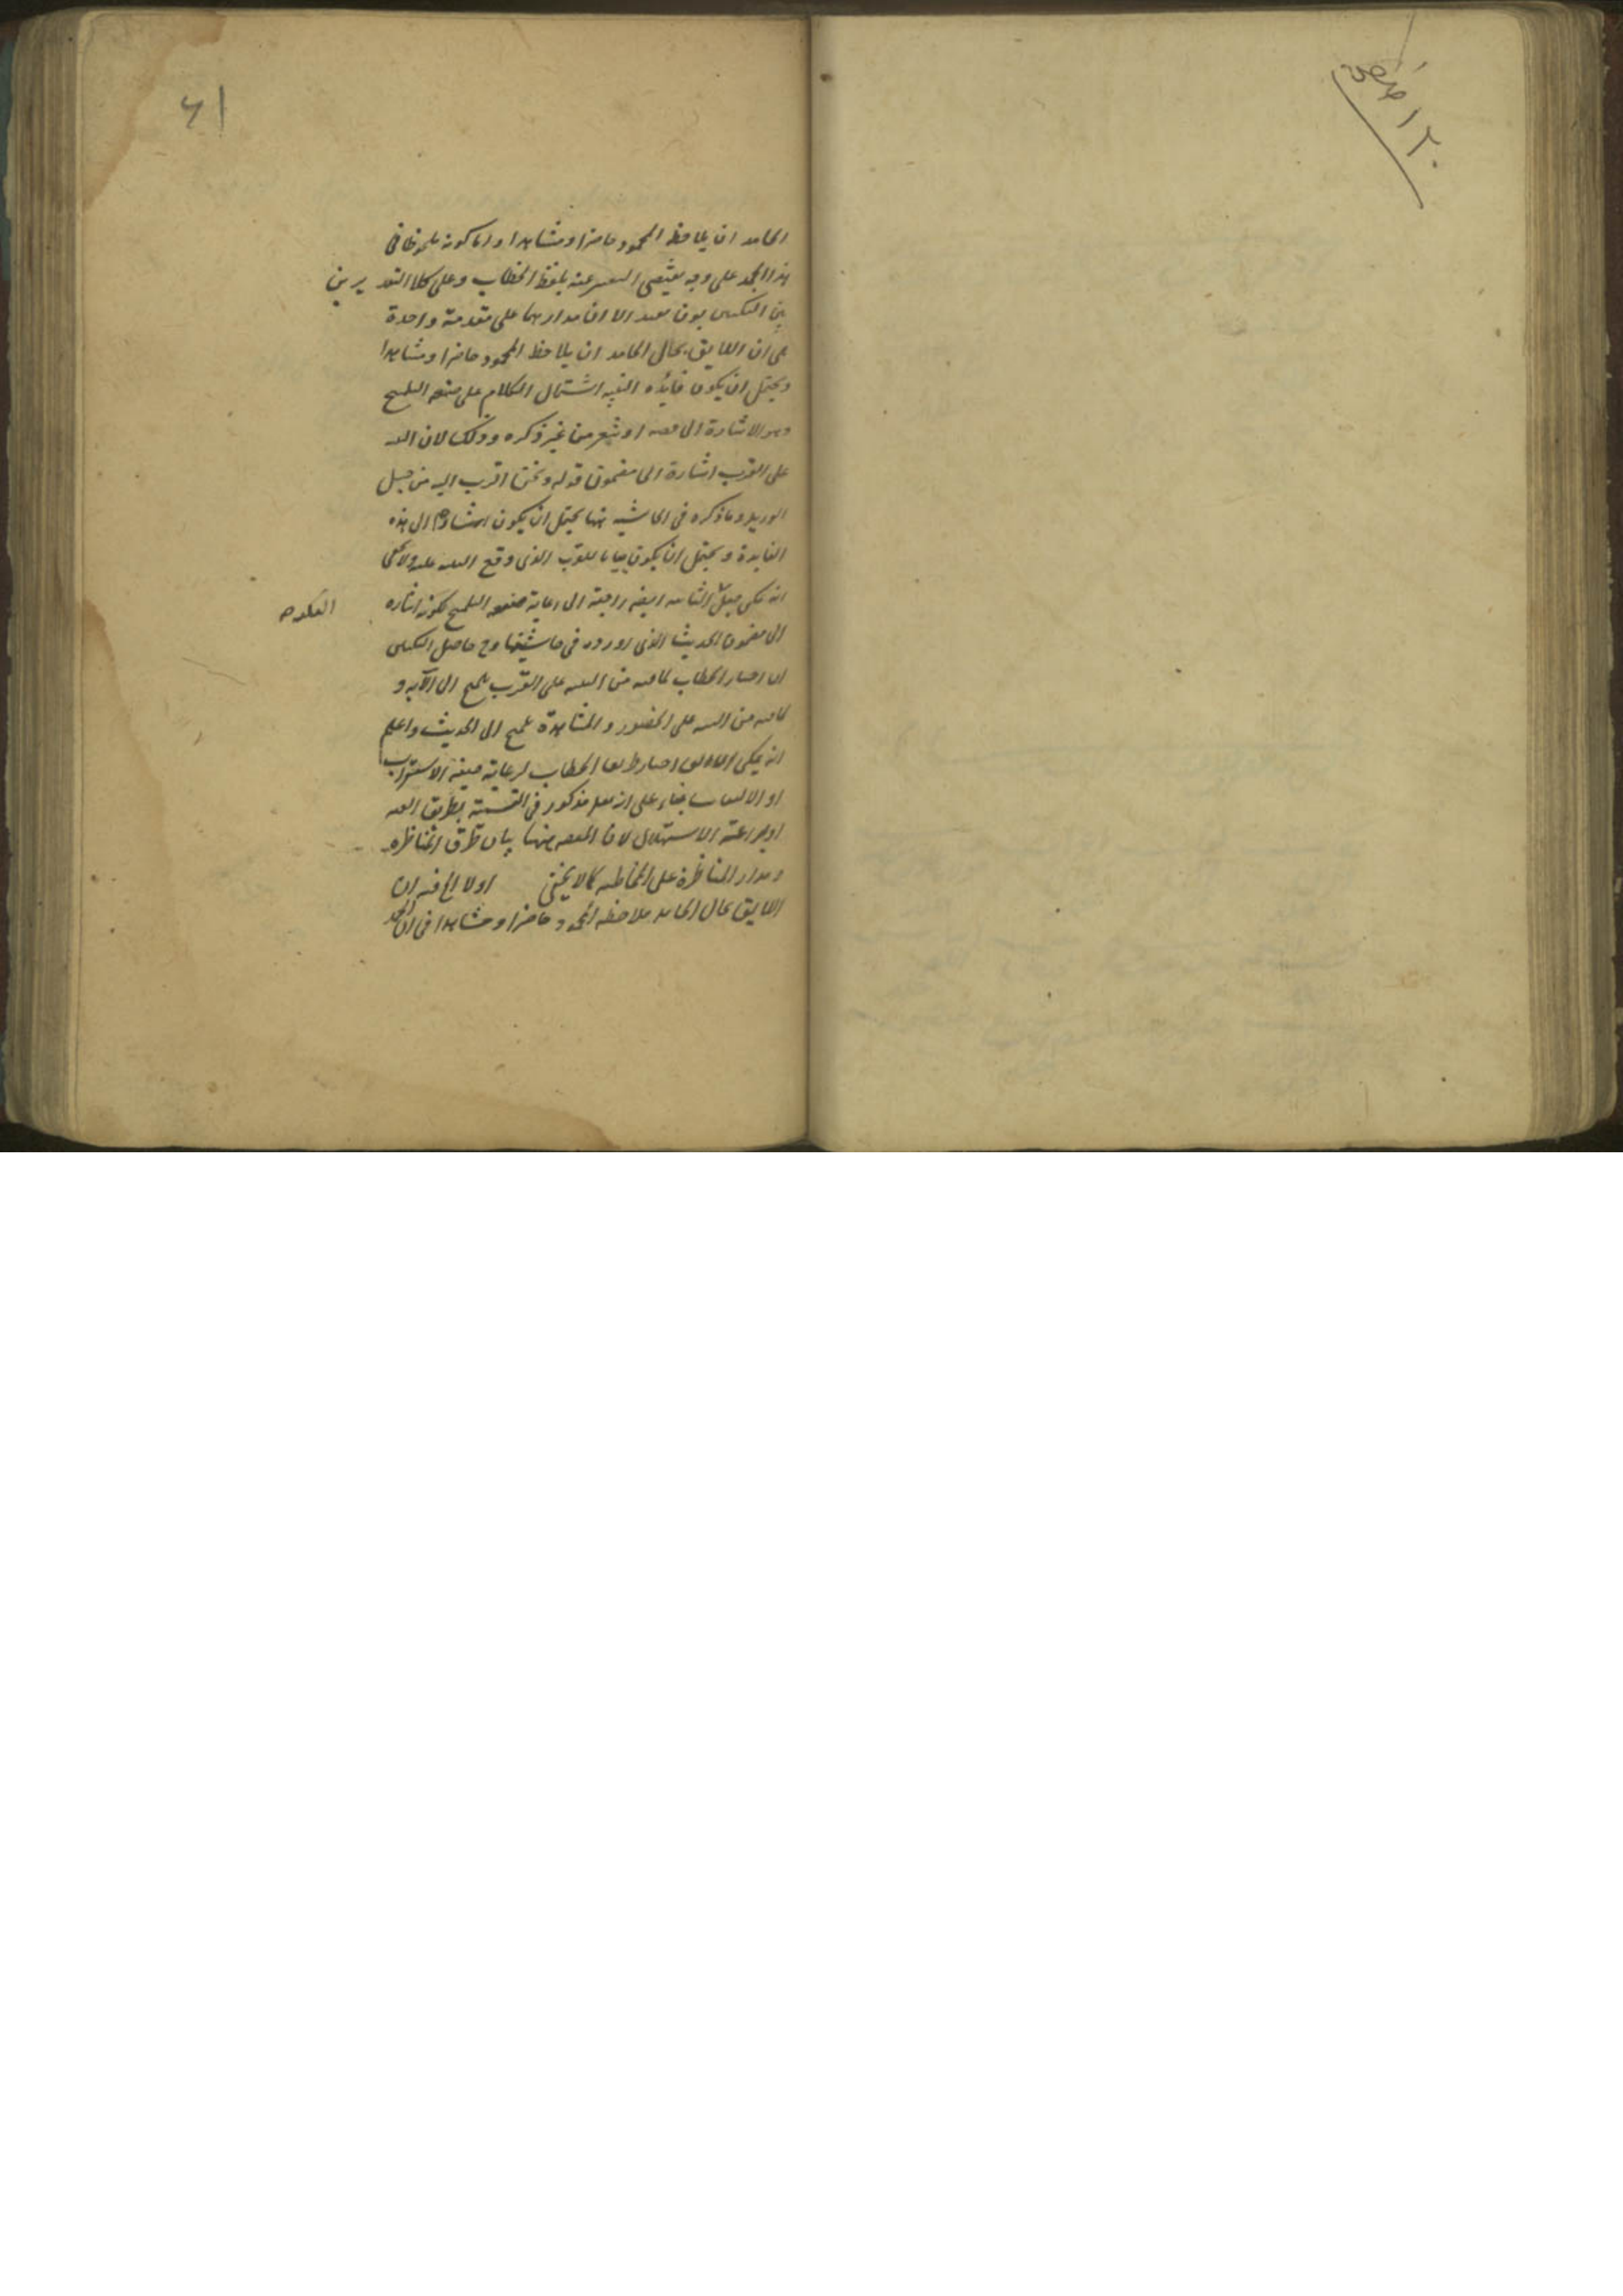 ١٢٠ صفحه
٦١
الحامد ان يلاحظ المحمود حاضرا ومشاهدا واما كونه ملحوظا فى
هذا الحمد على وجه يقتضى التعبير عنه بلفظ الخطاب وعلى كلا التقديرين
بين النكتتين بون بعيد الا ان مدارهما على مقدمة واحدة
هى ان اللايق بحال الحامد ان يلاحظ المحمود حاضرا ومشاهدا
ويحتمل ان يكون فائده التنبيه اشتمال الكلام على صنعه التلميح
وهو الاشارة الى قصه او شعر من غير ذكره وذلك لان التنبيه
على القرب اشارة الى مضمون قوله ونحن اقرب اليه من حبل
الوريد وما ذكره فى الحاشيه منها يحتمل ان يكون اشارة الى هذه
الفايدة ويحتمل ان يكون بيانا للقرب الذى وقع التنبيه عليه ولا يخفى
انه يمكن جعل الثانيه ايضا راجعة الى رعاية صنعه التلميح لكونه اشاره
النكته
الى مضمون الحديث الذى اورده فى حاشيتها وح حاصل النكتتين
ان اختيار الخطاب لما فيه من التنبيه على القرب تلميح الى الآيه و
لما فيه من التنبيه على الحضور والمشاهدة تلميح الى الحديث واعلم
انه يمكن ان اختيار طريق الخطاب لرعاية صنعة الاستغراب
او الالتفات بناء على انه تعالى مذكور فى التسمية بطريق الغيبه
او براعة الاستهلال لان المقصد منها بيان طرق المناظره
ومدار المناظرة على المخاطبه كما لا يخفى اولا الخ فيه ان
اللايق بحال الحامد ملاحظه المحمود حاضرا ومشاهدا فى ان الحمد